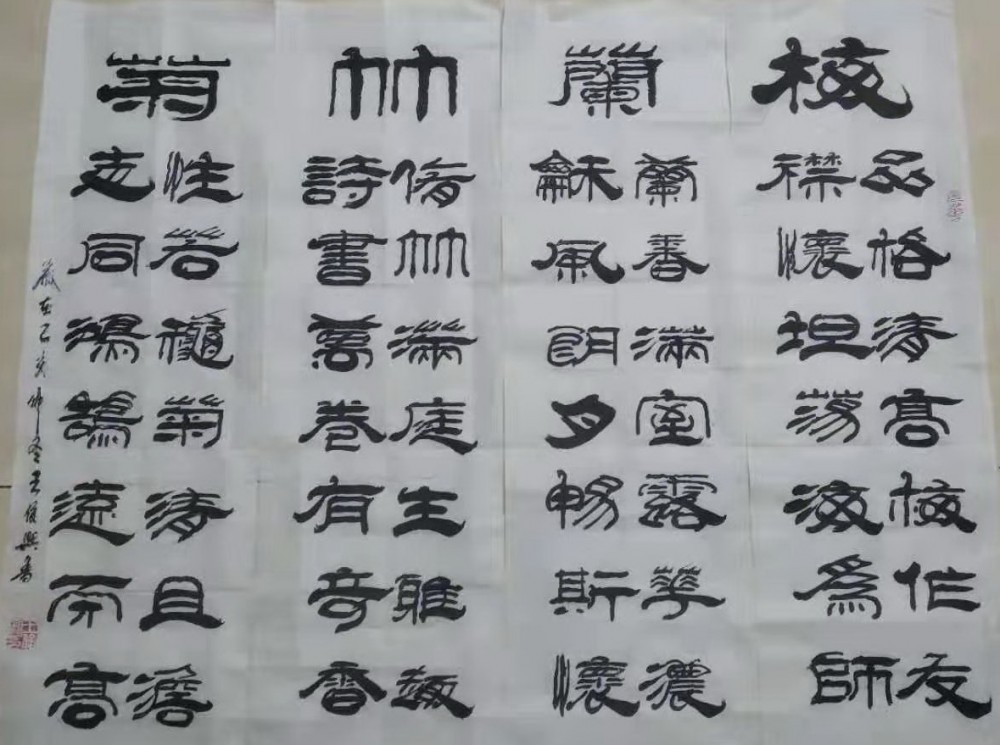 梅
品格清高梅作友
襟懷坦蕩海爲師
蘭
蘭香滿室露華濃
龢風朗月暢斯懷
竹
脩竹滿庭生雅趣
詩書萬卷有奇香
菊
性若龝菊清且澹
志同鴻鵠遠而高
歲在己亥仲冬俊興書